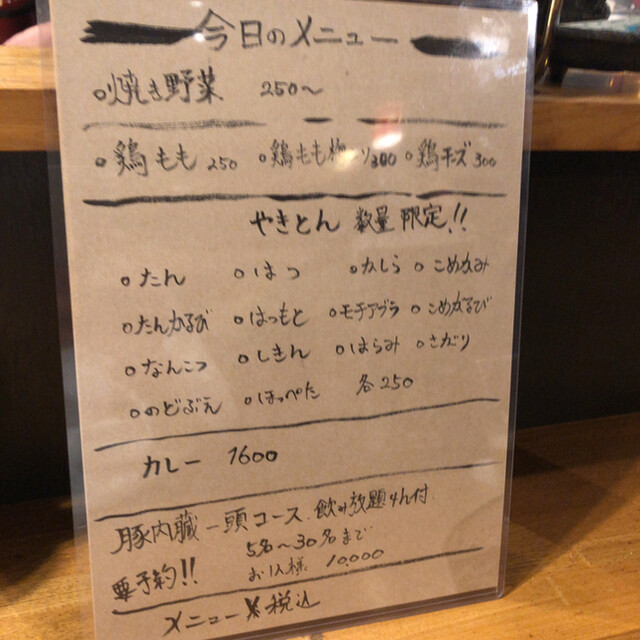 今日のメニュー
○焼き野菜 250〜
○鶏もも 250 ○鶏もも梅ーソ300 ○鶏チーズ 300
やきとん 数量限定!!
○たん ○はつ ○かしら ○こめかみ
○たんかるび ○はつもと ○モチアブラ ○こめかるび
○なんこつ ○しきん ○はらみ ○さがり
○のどぶえ ○ほっぺた 各250
カレー 1600
豚内臓一頭コース 飲み放題 付
5名〜30名まで
要予約!! お1人様 10,000
メニュー 税込